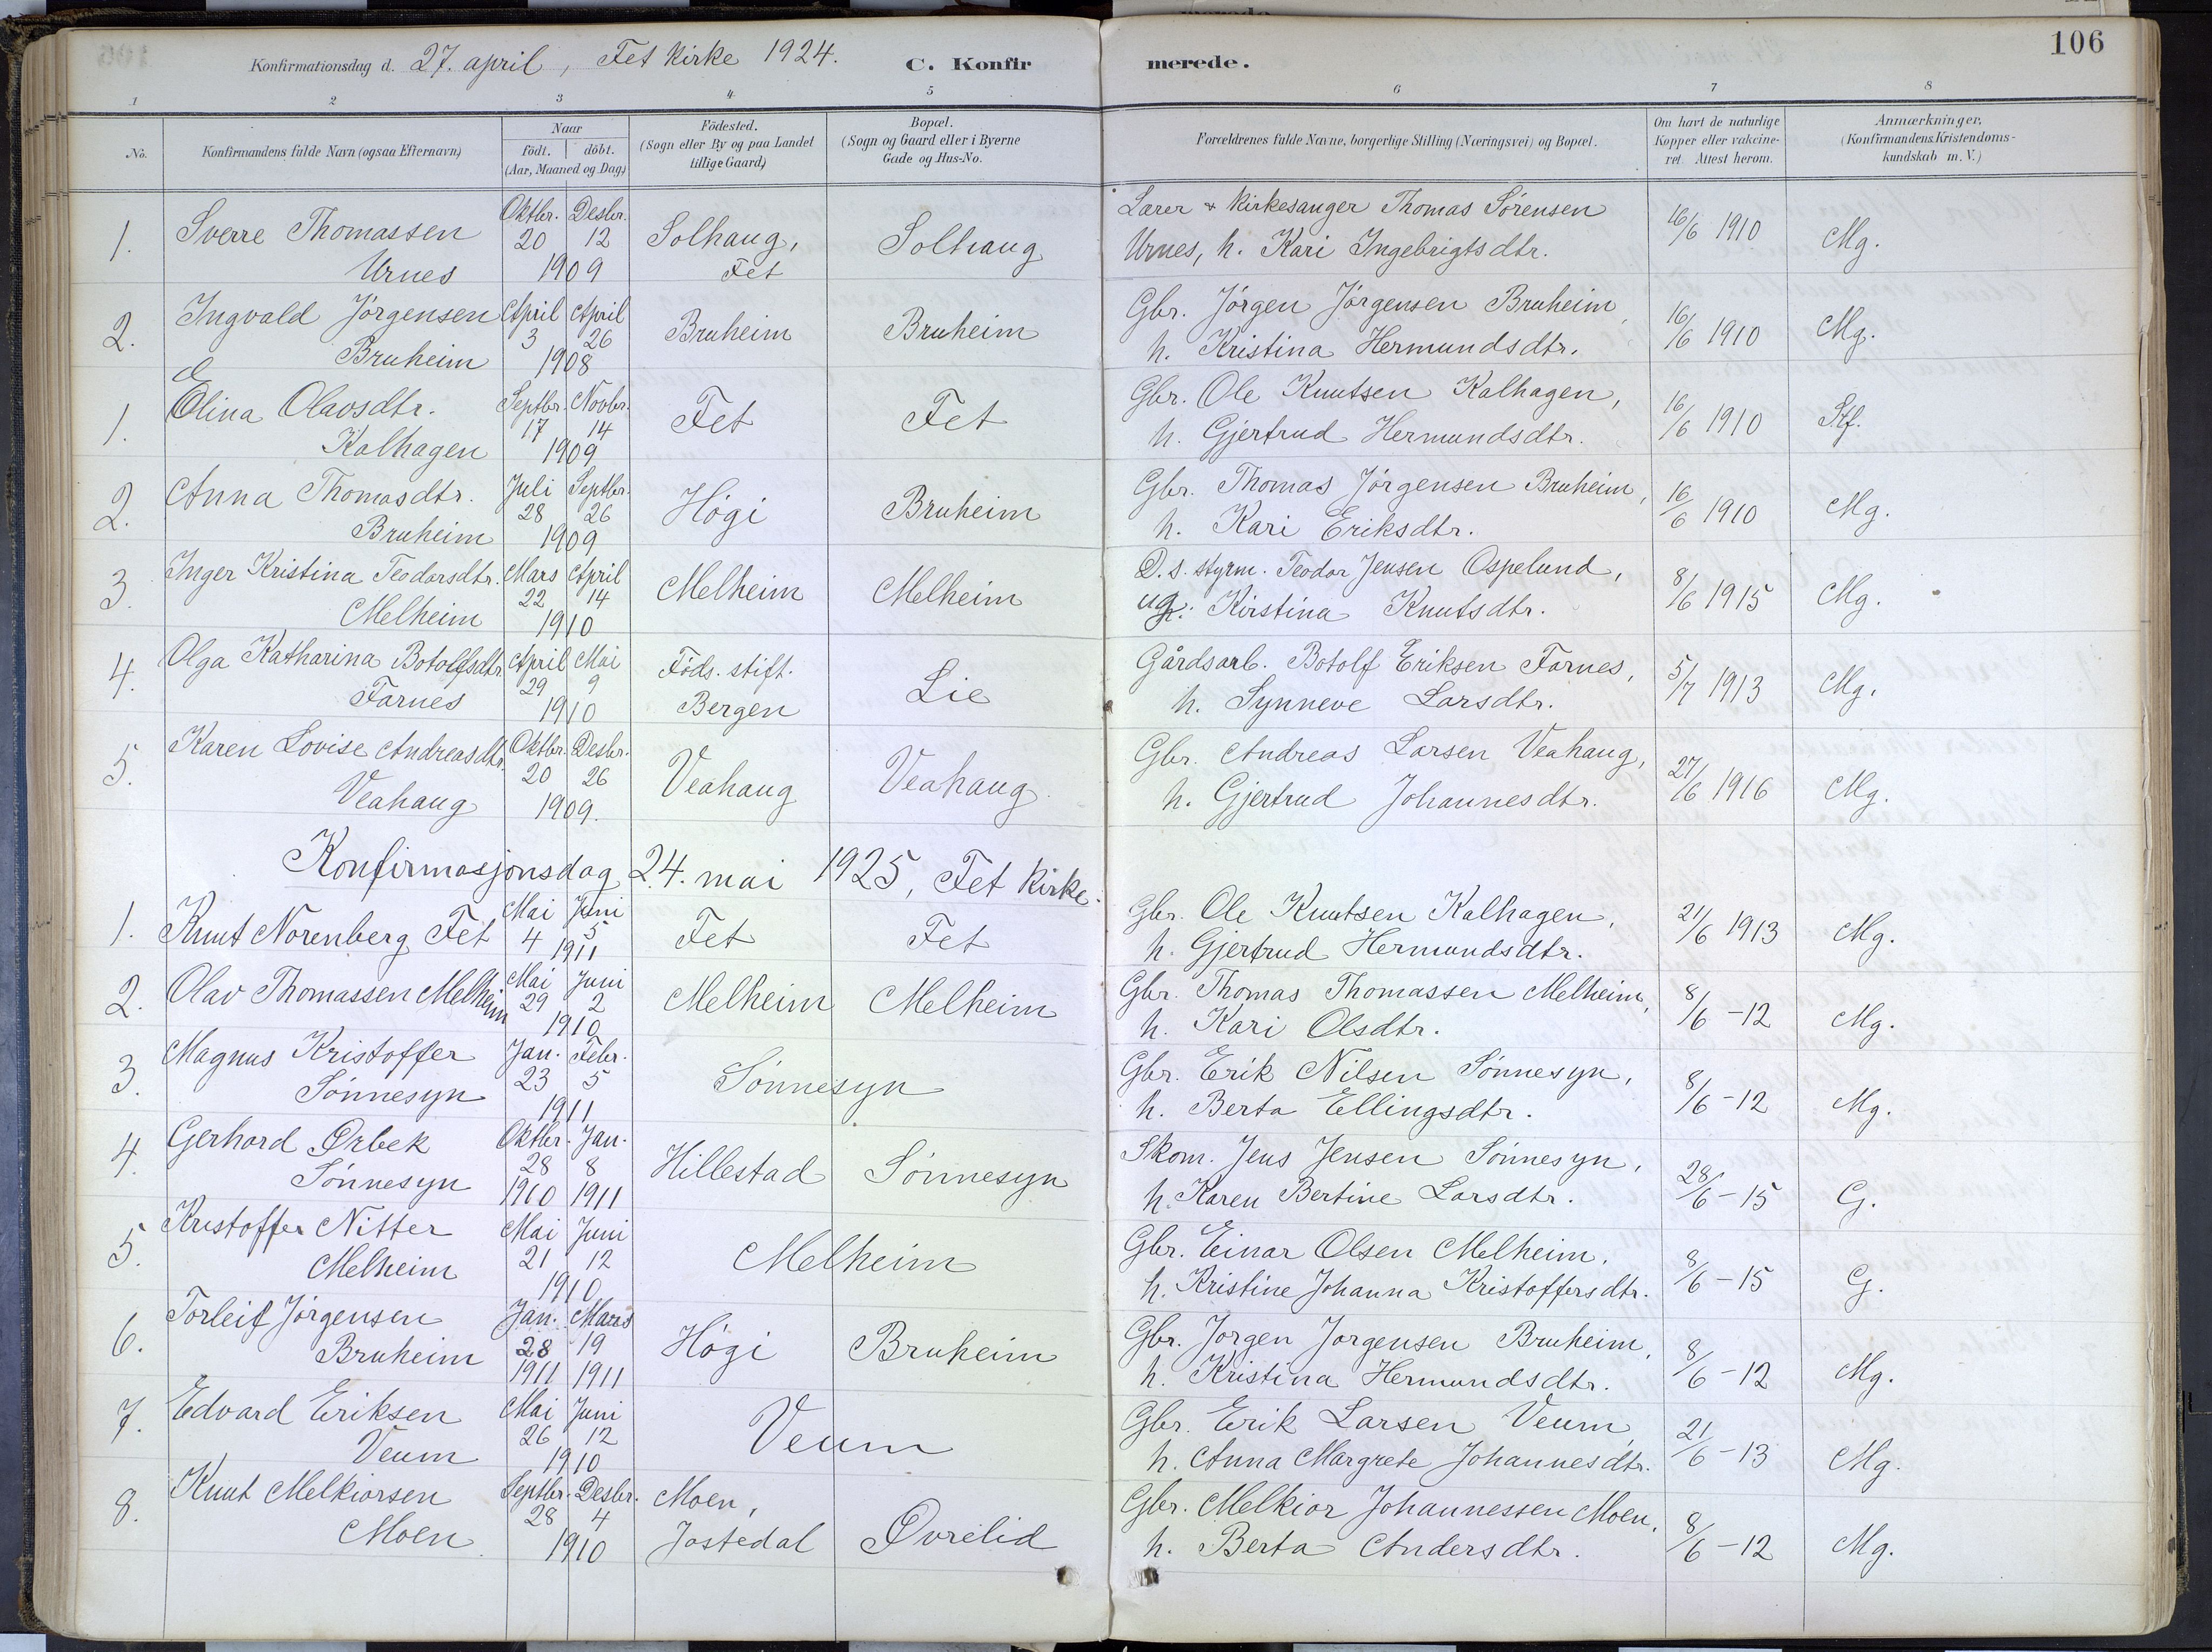 106
Konfirmationsdag d. 27. april, Fet Kirke 1924. C. Konfirmerede.
1 2 3 4 5 6 7 8
No. Konfirmandens fulde Navn (ogsaa Efternavn) Naar Födt. döbt. (Aar, Maaned og Dag) Födested. (Sogn eller By og paa Landet tillige Gaard) Bopæl. (Sogn og Gaard eller i Byerne Gade og Hus-No. Forældrenes fulde Navne, borgerlige Stilling (Næringsvei) og Bopæl. Om havt de naturlige Kopper eller vakcineret. Attest herom. Anmærkninger, (Konfirmandens Kristendomskundskab m. V.)
1. Sverre Thomassen Urnes Oktbr. 20 Desbr. 12 1909 Solhaug, Fet Solhaug Lærer & Kirkesanger Thomas Sörensen Urnes, h. Kari Ingebrigtsdtr. 16/6 1910 Mg.
2. Ingvald Jörgensen Bruheim April 3 April 26 1908 Bruheim Bruheim Gbr. Jörgen Jörgensen Bruheim, h. Kristina Hermundsdtr. 16/6 1910 Mg.
1. Olina Olavsdtr. Kalhagen Septbr. 17 Novbr. 14 1909 Fet Fet Gbr. Ole Knutsen Kalhagen, h. Gjertrud Hermundsdtr. 16/6 1910 Stf.
2. Anna Thomasdtr. Bruheim Juli 28 Septbr. 26 1909 Högi Bruheim Gbr. Thomas Jörgensen Bruheim, h. Kari Eriksdtr. 16/6 1910 Mg.
3. Inger Kristina Teodorsdtr. Melheim Mars 22 April 14 1910 Melheim Melheim D.s. styrm. Teodor Jensen Ospelund, ug. Kirstina Knutsdtr. 8/6 1915 Mg.
4. Olga Katharina Botolfsdtr. Farnes April 29 Mai 9 1910 Föds. stift. Bergen Lie Gårdsarb. Botolf Eriksen Farnes, h. Synneve Larsdtr. 5/7 1913 Mg.
5. Karen Lovise Andreasdtr. Veahaug Oktbr. 20 Desbr. 26 1909. Veahaug Veahaug Gbr. Andreas Larsen Veahaug, h. Gjertrud Johannesdtr. 27/6 1916 Mg.
Konfirmasjonsdag 24. mai 1925, Fet Kirke.
1. Knut Norenberg Fet Mai 4 Juni 5 1911 Fet Fet Gbr. Ole Knutsen Kalhagen, h. Gjertrud Hermundsdtr. 21/6 1913 Mg.
2. Olav Thomassen Melheim Mai 29 Juni 2 1910 Melheim Melheim Gbr. Thomas Thomassen Melheim, h. Kari Olsdtr. 8/6 -12 Mg.
3. Magnus Kristoffer Sönnesyn Jan. 23 Febr. 5 1911 Sönnesyn Gbr. Erik Nilsen Sönnesyn, h. Berta Ellingsdtr. 8/6 -12 Mg.
4. Gerhard Ørbek Sönnesyn Oktbr. 28 1910 Jan. 8 1911 Hillestad Sönnesyn Skom. Jens Jensen Sönnesyn, h. Karen Bertine Larsdtr. 28/6 -15 G.
5. Kristoffer Nitter Melheim Mai 21 Juni 12 1910 Melheim Gbr. Einar Olsen Melheim, h. Kristine Johanna Kristoffersdtr. 8/6 -15 G.
6. Torleif Jörgensen Bruheim Jan. 28 1911 Mars 19 1911 Högi Bruheim Gbr. Jorgen Jorgensen Bruheim, h. Kristina Hermundsdtr. 8/6 -12 Mg.
7. Edvard Eriksen Veum Mai 26 Juni 12 1910 Veum Gbr. Erik Larsen Veum, h. Anna Margrete Johannesdtr. 21/6 -13 Mg.
8. Knut Melkiorsen Moen Septbr. 28 Desbr. 4 1910 Moen, Jostedal Øvrelid Gbr. Melkior Johannessen Moen, h. Berta Andersdtr. 8/6 -12 Mg.